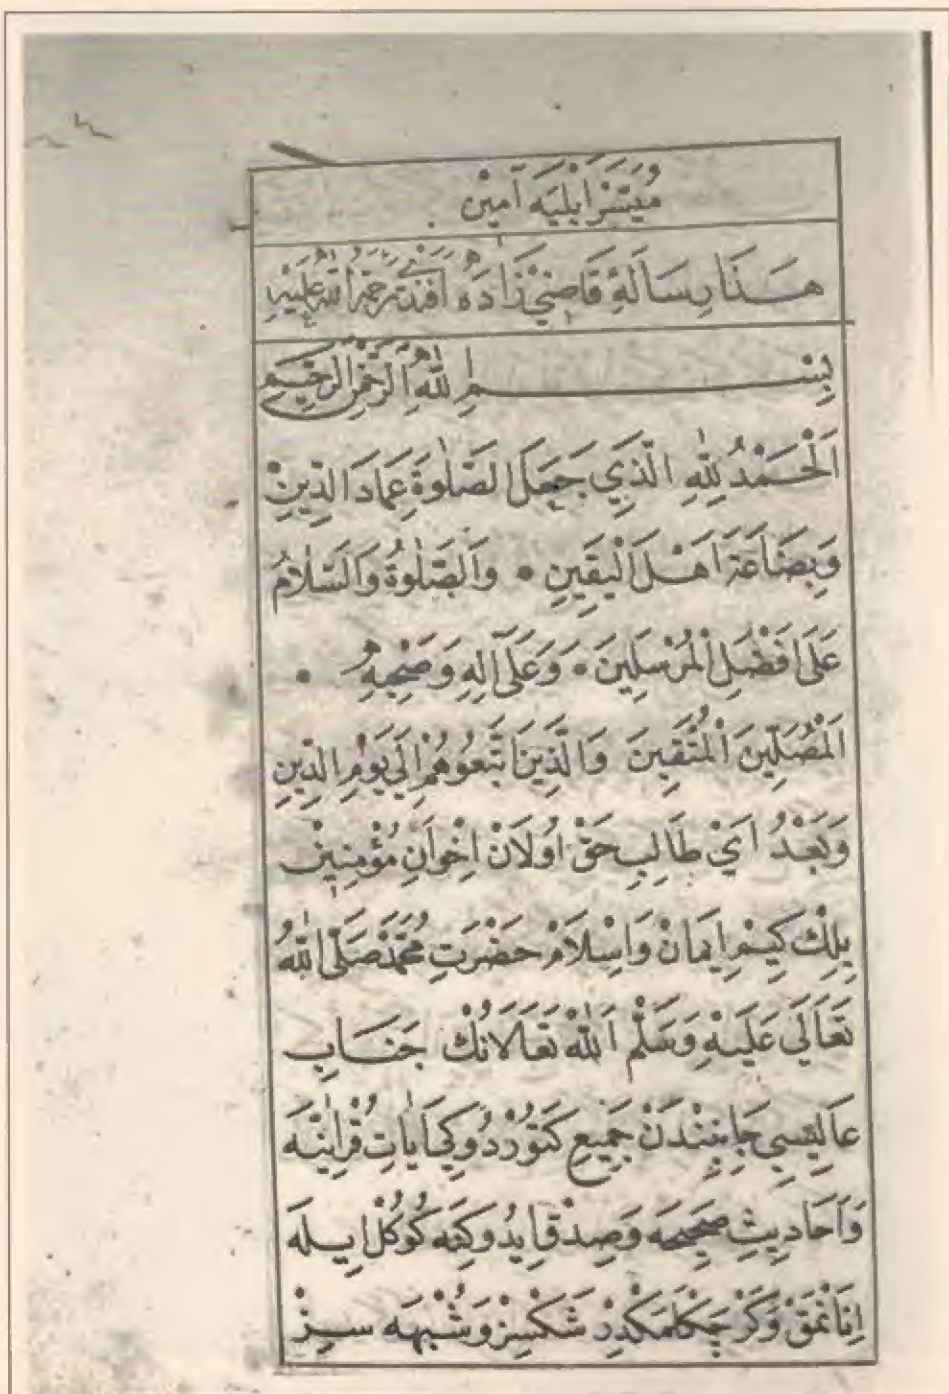 مُيَسَّرْ اَيْلِيَه اٰمِينْ
هَذَا رِسَالَةِ قَاضِيْ زَادَه اَفَنْدِي رَحْمَةُ اللّٰهِ عَلَيْهِ
بِسْمِ اللّٰهِ الرَّحْمٰنِ الرَّحِيمِ
اَلْحَمْدُ لِلّٰهِ الَّذِي جَعَلَ الصَّلٰوةَ عِمَادَ الدِّينِ
وَبِضَاعَةَ اَهْلِ الْيَقِينِ • وَالصَّلٰوةُ وَالسَّلَامُ
عَلَى اَفْضَلِ الْمُرْسَلِينَ • وَعَلَى اٰلِهِ وَصَحْبِهِ •
الْمُصَلِّينَ الْمُتَّقِينَ وَالَّذِينَ اتَّبَعُوهُمْ اِلَى يَوْمِ الدِّينِ
وَبَعْدُ اَيْ طَالِبِ حَقْ اُولَانْ اِخْوَانِ مُؤْمِنِينْ
بِلِكْ كِيمْ اِيمَانْ وَاِسْلَامْ حَضْرَتِ مُحَمَّدْ صَلَّى اللّٰهُ
تَعَالَى عَلَيْهِ وَسَلَّمْ اَللّٰهْ تَعَالَانُكْ جَنَابِ
عَالِيسِي جَانِبِنْدَنْ جَمِيعِ كَتُورْدُوكِي اٰيَاتِ قُرْاٰنِيَّه
وَاَحَادِيثِ صَحِيحَه وَصِدْق اِيدُوكِنَه كُوكُلْ اِيلَه
اِنَانْمَقْ وَكَرْچَكْلَمَكْدِرْ شَكْسِزْ وَشُبْهَه سِزْ